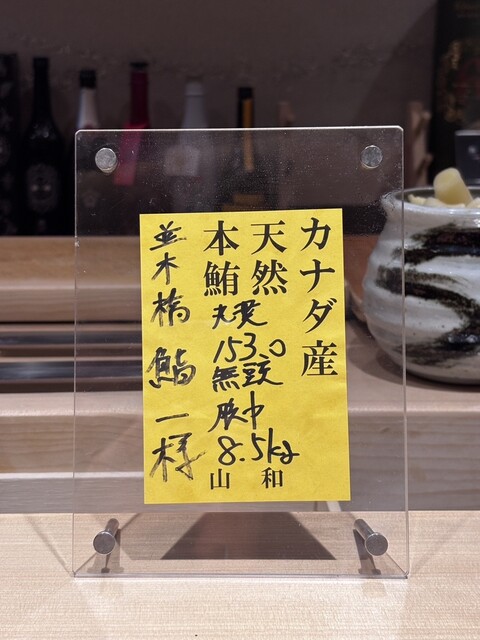 カナダ産
天然
本鮪
153.0
無頭
腹中
8.5kg
山和
並木橋 鮨一様